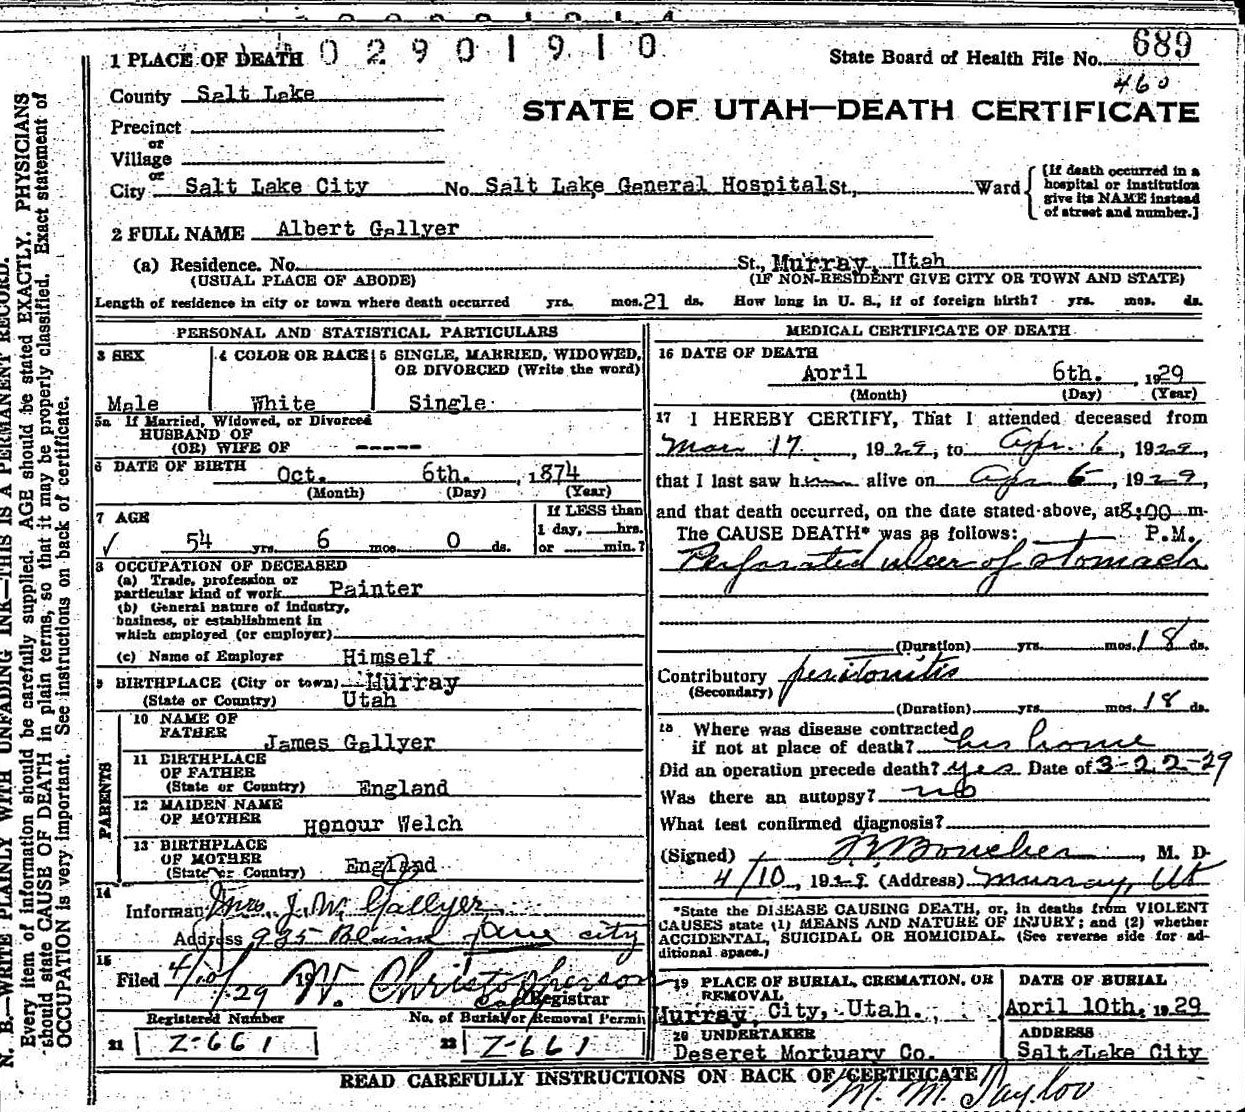 02901910
1 PLACE OF DEATH
State Board of Health File No. 689
460
County Salt Lake
STATE OF UTAH—DEATH CERTIFICATE
Precinct
or
Village
or
City Salt Lake City No. Salt Lake General Hospital St., Ward
[If death occurred in a hospital or institution give its NAME instead of street and number.]
2 FULL NAME Albert Gallyer
(a) Residence. No. St., Murray, Utah
(USUAL PLACE OF ABODE) (IF NON-RESIDENT GIVE CITY OR TOWN AND STATE)
Length of residence in city or town where death occurred yrs. mos. 21 ds. How long in U. S., if of foreign birth? yrs. mos. ds.
PERSONAL AND STATISTICAL PARTICULARS
3 SEX
Male
4 COLOR OR RACE
White
5 SINGLE, MARRIED, WIDOWED,
OR DIVORCED (Write the word)
Single
5a If Married, Widowed, or Divorced
HUSBAND OF
(OR) WIFE OF -----
6 DATE OF BIRTH Oct. 6th. , 1874
(Month) (Day) (Year)
7 AGE
✓ 54 yrs. 6 mos. 0 ds.
If LESS than
1 day, hrs.
or min.?
8 OCCUPATION OF DECEASED
(a) Trade, profession or
particular kind of work Painter
(b) General nature of industry,
business, or establishment in
which employed (or employer)
(c) Name of Employer Himself
9 BIRTHPLACE (City or town) Murray
(State or Country) Utah
PARENTS
10 NAME OF
FATHER
James Gallyer
11 BIRTHPLACE
OF FATHER
(State or Country) England
12 MAIDEN NAME
OF MOTHER Honour Welch
13 BIRTHPLACE
OF MOTHER
(State or Country) England
14
Informant Mrs. J. W. Gallyer
Address 935 Blaine Ave City
15
Filed 4/10/29 19 W. Christopherson
Registrar
Registered Number No. of Burial or Removal Permit
21 Z-661 22 Z-661
MEDICAL CERTIFICATE OF DEATH
16 DATE OF DEATH
April 6th. , 1929
(Month) (Day) (Year)
17 I HEREBY CERTIFY, That I attended deceased from
Mar 17 , 1929, to Apr. 6 , 1929,
that I last saw him alive on Apr 6 , 1929,
and that death occurred, on the date stated above, at 8:00 m.
The CAUSE DEATH* was as follows: P.M.
Perforated ulcer of stomach
(Duration) yrs. mos. 18 ds.
Contributory peritonitis
(Secondary)
(Duration) yrs. mos. 18 ds.
18 Where was disease contracted
if not at place of death? his home
Did an operation precede death? yes Date of 3-22-29
Was there an autopsy? no
What test confirmed diagnosis?
(Signed) Boucher , M. D.
4/10 , 1929 (Address) Murray, Ut
*State the DISEASE CAUSING DEATH, or, in deaths from VIOLENT
CAUSES state (1) MEANS AND NATURE OF INJURY; and (2) whether
ACCIDENTAL, SUICIDAL OR HOMICIDAL. (See reverse side for ad-
ditional space.)
19 PLACE OF BURIAL, CREMATION, OR
REMOVAL
Murray City, Utah.
DATE OF BURIAL
April 10th, 1929
20 UNDERTAKER
Deseret Mortuary Co.
ADDRESS
Salt Lake City
READ CAREFULLY INSTRUCTIONS ON BACK OF CERTIFICATE
M. M. Taylor
N. B.—WRITE PLAINLY WITH UNFADING INK—THIS IS A PERMANENT RECORD.
Every item of information should be carefully supplied. AGE should be stated EXACTLY. PHYSICIANS
should state CAUSE OF DEATH in plain terms, so that it may be properly classified. Exact statement of
OCCUPATION is very important. See instructions on back of certificate.